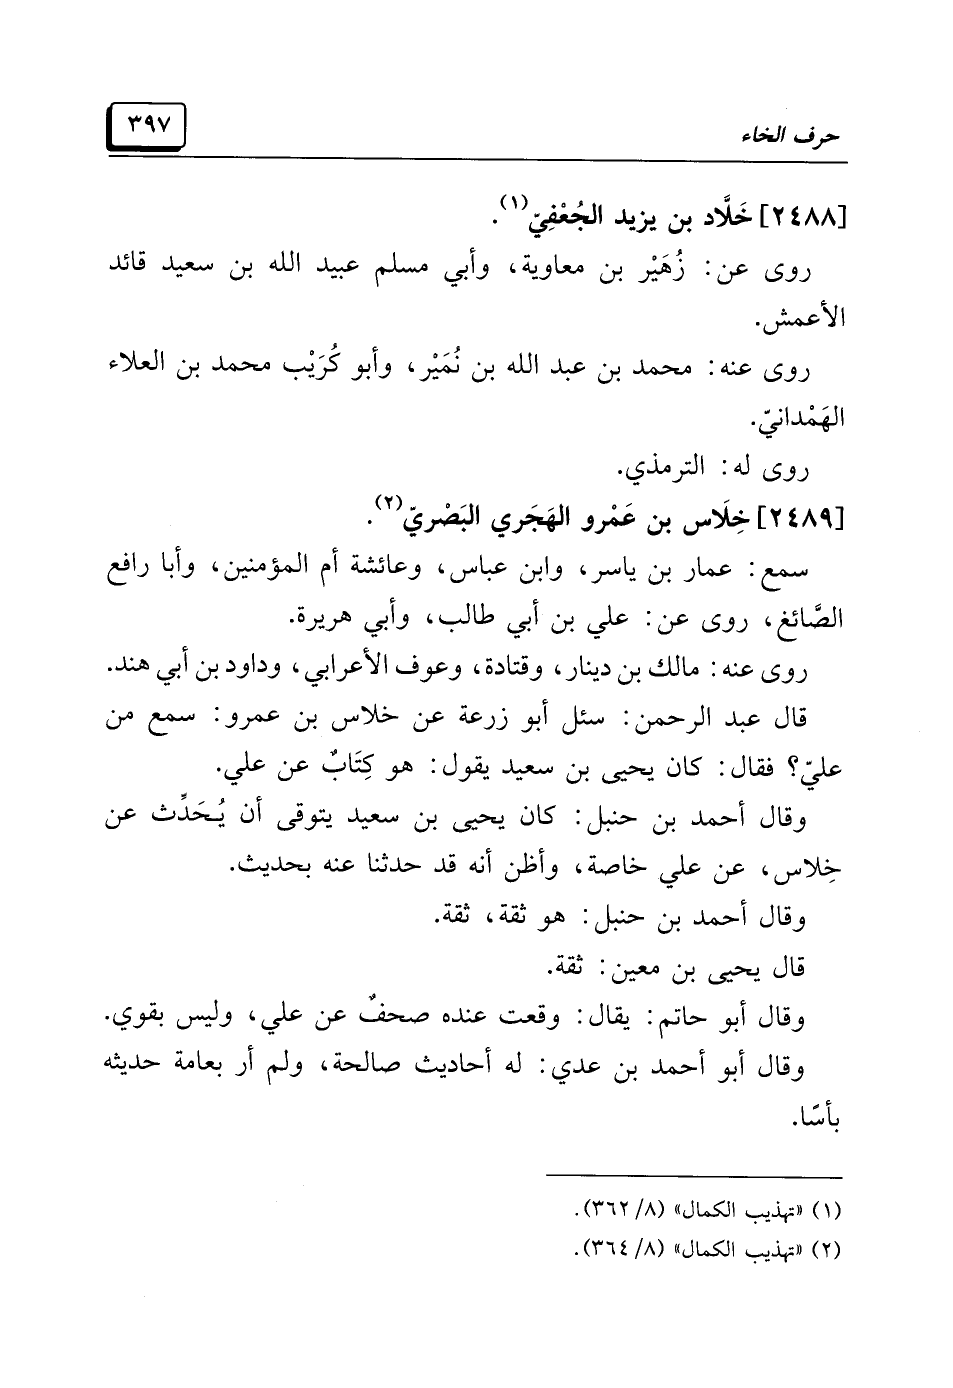 حرف الخاء
٣٩٧
[٢٤٨٨] خَلَّاد بن يزيد الجُعْفِيّ(١).
روى عن: زُهَيْر بن معاوية، وأبي مسلم عبيد الله بن سعيد قائد
الأعمش.
روى عنه: محمد بن عبد الله بن نُمَيْر، وأبو كُرَيْب محمد بن العلاء
الهَمْدانيّ.
روى له: الترمذي.
[٢٤٨٩] خِلَاس بن عَمْرو الهَجَري البَصْريّ(٢).
سمع: عمار بن ياسر، وابن عباس، وعائشة أم المؤمنين، وأبا رافع
الصَّائغ، روى عن: علي بن أبي طالب، وأبي هريرة.
روى عنه: مالك بن دينار، وقتادة، وعوف الأعرابي، وداود بن أبي هند.
قال عبد الرحمن: سئل أبو زرعة عن خلاس بن عمرو: سمع من
عليّ؟ فقال: كان يحيى بن سعيد يقول: هو كِتَابٌ عن علي.
وقال أحمد بن حنبل: كان يحيى بن سعيد يتوقى أن يُحَدِّث عن
خِلاس، عن علي خاصة، وأظن أنه قد حدثنا عنه بحديث.
وقال أحمد بن حنبل: هو ثقة، ثقة.
قال يحيى بن معين: ثقة.
وقال أبو حاتم: يقال: وقعت عنده صحفٌ عن علي، وليس بقوي.
وقال أبو أحمد بن عدي: له أحاديث صالحة، ولم أر بعامة حديثه
بأسًا.
(١) «تهذيب الكمال» (٨/ ٣٦٢).
(٢) «تهذيب الكمال» (٨/ ٣٦٤).